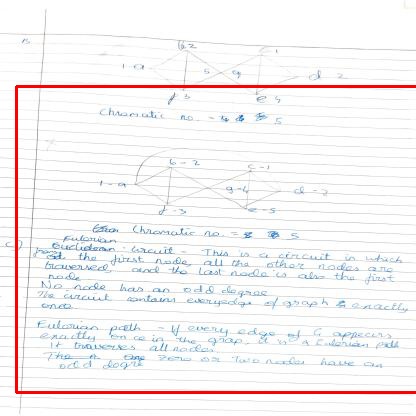 B
b 2
c 1
1 - a
5
g
d - 2
f 3
e 4
Chromatic no. = 5
b - 2
c - 1
1 - a
g - 4
d - 2
f - 3
e - 5
Chromatic no. = 5
c)
Eulerian
Circuit - This is a circuit in which
the first node, all the other nodes are
traversed, and the last node is also the first
node
No node has an odd degree
The circuit contains every edge of graph exactly
once.
Eulerian path - If every edge of G appears
exactly once in the grap, it is a Eulerian path
It traverses all nodes.
The zero or two nodes have an
odd degre